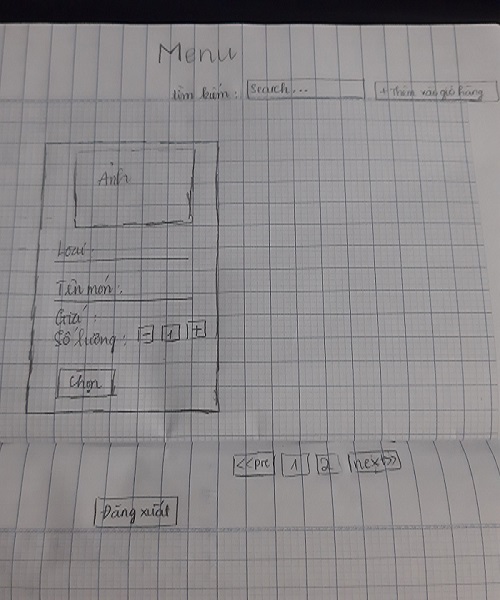 Menu
tìm kiếm: Search... + Thêm vào giỏ hàng
Ảnh
Loại:
Tên món:
Giá:
Số lượng: - 1 +
Chọn
<<pre 1 2 next>>
Đăng xuất